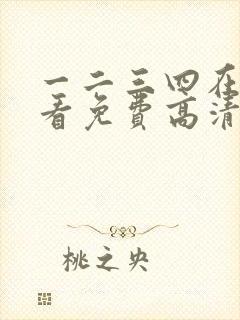 一二三四在
看免费高清
桃之央